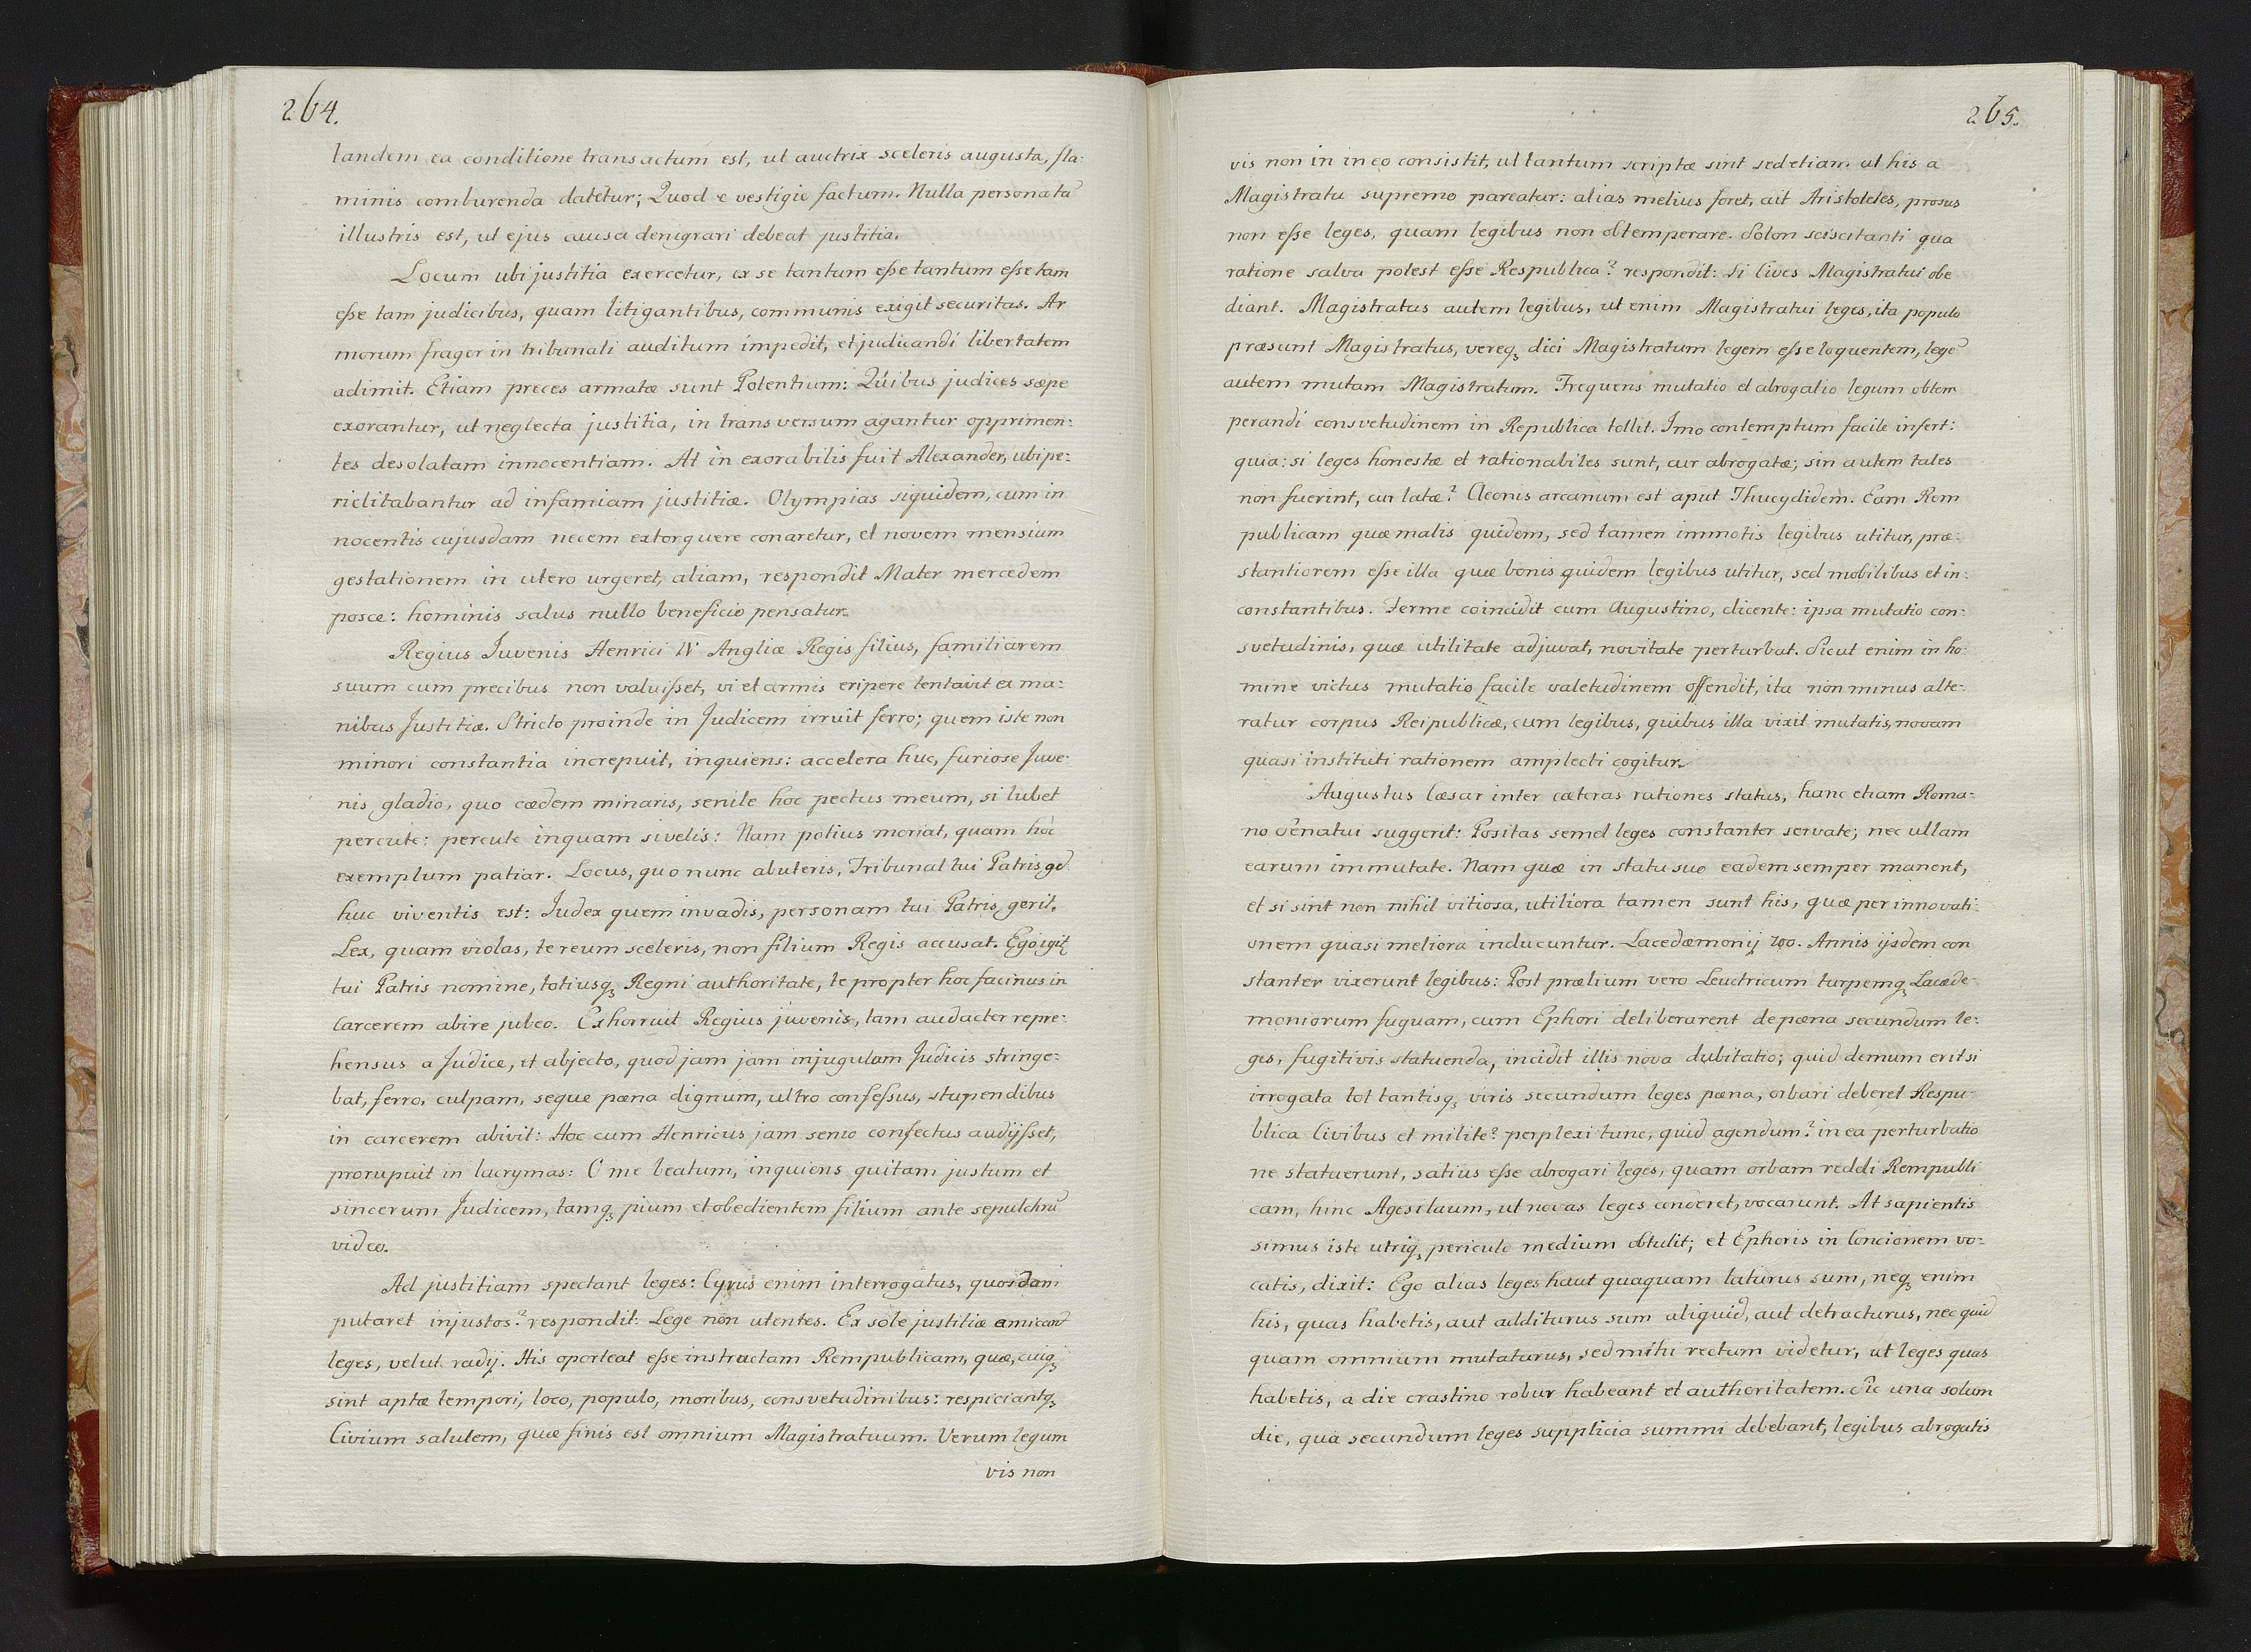 264.
tandem ea conditione transactum est, ut auctrix sceleris augusta, fla-
minis comburenda datetur; Quod e vestigio factum. Nulla persona tã
illustris est, ut ejus causa denigrari debeat justitia.
Locum ubi justitia exercetur, ex se tantum esse tantum esse tam
esse tam judicibus, quam litigantibus, communis exigit securitas. Ar
morum fragor in tribunali auditum impedit, et judicandi libertatem
adimit. Etiam preces armatæ sunt Potentium: Quibus judices sæpe
exorantur, ut neglecta justitia, in transversum agantur opprimen-
tes desolatam innocentiam. At in exorabilis fuit Alexander, ubi pe-
riclitabantur ad infamiam justitiæ. Olympias siquidem, cum in
nocentis cujusdam necem extorquere conaretur, et novem mensium
gestationem in utero urgeret, aliam, respondit Mater mercedem
posce: hominis salus nullo beneficio pensatur.
Regius Juvenis Henrici IV Angliæ Regis filius, familiarem
suum cum precibus non valuisset, vi et armis eripere tentavit ex ma-
nibus Justitiæ. Stricto proinde in Judicem irruit ferro; quem iste non
minori constantia increpuit, inquiens: accelera huc, furiose Juve-
nis gladio, quo cædem minaris, senile hoc pectus meum, si lubet
percute: percute inquam si velis: Nam potius moriar, quam hoc
exemplum patiar. Locus, quo nunc abuteris, Tribunal tui Patris, qd
huc viventis est: Judex quem invadis, personam tui Patris gerit.
Lex, quam violas, te reum sceleris, non filium Regis accusat. Ego igit
tui Patris nomine, totiusq3 Regni authoritate, te propter hoc facinus in
Carcerem abire jubeo. Exhorruit Regius juvenis, tam audacter repre-
hensus a Judice, et abjecto, quod jam jam in jugulam Judicis stringe-
bat, ferro, culpam, seque pæna dignum, ultro confessus, stupendibus
in carcerem abivit: Hoc cum Henricus jam senio confectus audijsset,
prorupuit in lacrymas: O me beatum, inquiens qui tam justum et
sincerum Judicem, tamq3 pium et obedientem filium ante sepulchrũ
video.
Ad justitiam spectant leges: Cyrus enim interrogatus, quosdam
putaret injustos? respondit: Lege non utentes. Ex sole justitiæ emicant
leges, velut radij. His oporteat esse instructam Rempublicam, quæ, cuiq3
sint aptæ tempori, loco, populo, moribus, consvetudinibus: respiciantq3
Civium salutem, quæ finis est omnium Magistratuum. Verum legum
vis non
265.
vis non in in eo consistit, ut tantum scriptæ sint sed etiam ut his a
Magistratu supremo pareatur: alias melius foret, ait Aristoteles, prosus
non esse leges, quam legibus non obtemperare. Solon sciscitanti qua
ratione salva potest esse Respublica? respondit: Si Cives Magistratui obe
diant. Magistratus autem legibus, ut enim Magistratui leges, ita populo
præsunt Magistratus, vereq3 dici Magistratum legem esse loquentem, legẽ
autem mutam Magistratum. Frequens mutatio et abrogatio legum obtem
perandi consvetudinem in Republica tollit. Imo contemptum facile infert:
quia: si leges honestæ et rationabiles sunt, cur abrogatæ; sin autem tales
non fuerint, cur latæ? Cleonis arcanum est aput Thucydidem. Eam Rem
publicam quæ malis quidem, sed tamen immotis legibus utitur, præ-
stantiorem esse illa quæ bonis quidem legibus utitur, sed mobilibus et in-
constantibus. Ferme coincidit cum Augustino, dicente: ipsa mutatio con-
svetudinis, quæ utilitate adjuvat, novitate perturbat. Sicut enim in ho-
mine victus mutatio facile valetudinem offendit, ita non minus alte-
ratur corpus Reipublicæ, cum legibus, quibus illa vixit mutatis, novam
quasi instituti rationem amplecti cogitur.
Augustus Cæsar inter cæteras rationes status, hanc etiam Roma-
no Senatui suggerit: Positas semel leges constanter servate; nec ullam
earum immutate. Nam quæ in statu suo eadem semper manent,
et si sint non nihil vitiosa, utiliora tamen sunt his, quæ per innovati-
onem quasi meliora inducuntur. Lacedæmonij 700. Annis ijsdem con
stanter vixerunt legibus: Post prælium vero Leuctricum turpemq3 Lacæde-
moniorum fuguam, cum Ephori deliberarent de pæna secundum le-
ges, fugitivis statuenda, incidit illis nova dubitatio; quid demum erit si
irrogata tot tantisq3 viris secundum leges pæna, orbari deberet Respu-
blica Civibus et milite? perplexi tunc, quid agendum? in ea perturbatio
ne statuerunt, satius esse abrogari leges, quam orbam reddi Rempubli
cam, hinc Agesilaum, ut novas leges conderet, vocarunt. At sapientis
simus iste utriq3 periculo medium obtulit; et Ephoris in Concionem vo-
catis, dixit: Ego alias leges haut quaquam laturus sum, neq3 enim
his, quas habetis, aut additurus sum aliquid, aut detracturus, nec quid
quam omnium mutaturus, sed mihi rectum videtur, ut leges quas
habetis, a die crastino robur habeant et authoritatem. Sic una solum
die, qua secundum leges supplicia summi debebant, legibus abrogatis